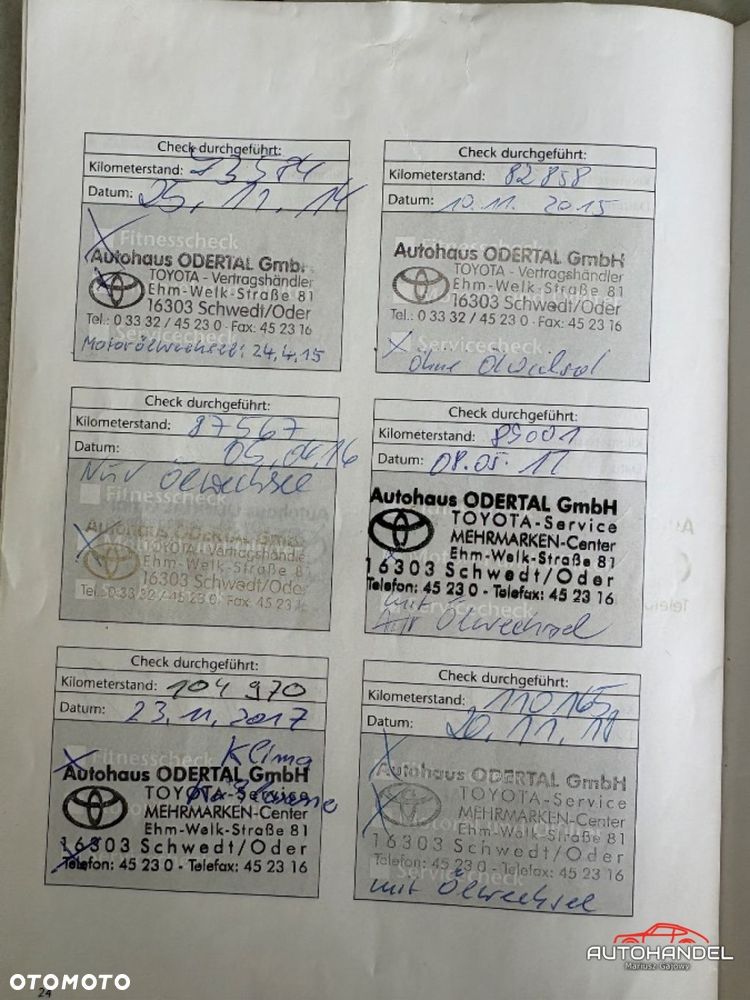 Check durchgeführt:
Kilometerstand: 73584
Datum: 25.11.14
Fitnesscheck
Autohaus ODERTAL GmbH
TOYOTA - Vertragshändler
Ehm-Welk-Straße 81
16303 Schwedt/Oder
Tel.: 0 33 32 / 45 23 0 · Fax: 45 23 16
Servicecheck
Motorölwechsel: 24.4.15
Check durchgeführt:
Kilometerstand: 82858
Datum: 10.11. 2015
Autohaus ODERTAL GmbH
TOYOTA - Vertragshändler
Ehm-Welk-Straße 81
16303 Schwedt/Oder
Tel.: 0 33 32 / 45 23 0 · Fax: 45 23 16
Servicecheck
ohne Ölwechsel
Check durchgeführt:
Kilometerstand: 87567
Datum:
Nur Ölwechsel
Fitnesscheck
Autohaus ODERTAL GmbH
TOYOTA - Vertragshändler
Ehm-Welk-Straße 81
16303 Schwedt/Oder
Tel.: 0 33 32 / 45 23 0 · Fax: 45 23 16
Check durchgeführt:
Kilometerstand:
Datum:
Autohaus ODERTAL GmbH
TOYOTA-Service
MEHRMARKEN-Center
Ehm-Welk-Straße 81
16303 Schwedt/Oder
Telefon: 45 23 0 - Telefax: 45 23 16
Servicecheck
mit
Ölwechsel
Check durchgeführt:
Kilometerstand: 104 970
Datum: 23.11.2017
Klima
Fitnesscheck
Autohaus ODERTAL GmbH
TOYOTA-Service
MEHRMARKEN-Center
Ehm-Welk-Straße 81
16303 Schwedt/Oder
Telefon: 45 23 0 - Telefax: 45 23 16
Check durchgeführt:
Kilometerstand: 110165
Datum: 20.11.18
Autohaus ODERTAL GmbH
TOYOTA-Service
MEHRMARKEN-Center
Ehm-Welk-Straße 81
16303 Schwedt/Oder
Telefon: 45 23 0 - Telefax: 45 23 16
Servicecheck
mit Ölwechsel
24
OTOMOTO
AUTOHANDEL
Mariusz Gajowy